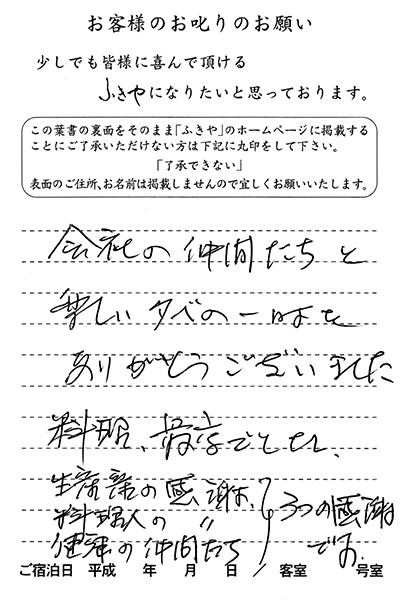 お客様のお叱りのお願い
少しでも皆様に喜んで頂ける
ふきやになりたいと思っております。
この葉書の裏面をそのまま「ふきや」のホームページに掲載する
ことにご了承いただけない方は下記に丸印をして下さい。
「了承できない」
表面のご住所、お名前は掲載しませんので宜しくお願いいたします。
会社の仲間たちと
楽しい夕べの一時を
ありがとうございました
料理、最高でした。
生産者の感謝
料理人の 〃
健康の仲間たち
3つの感謝
です。
ご宿泊日 平成 年 月 日 / 客室 号室